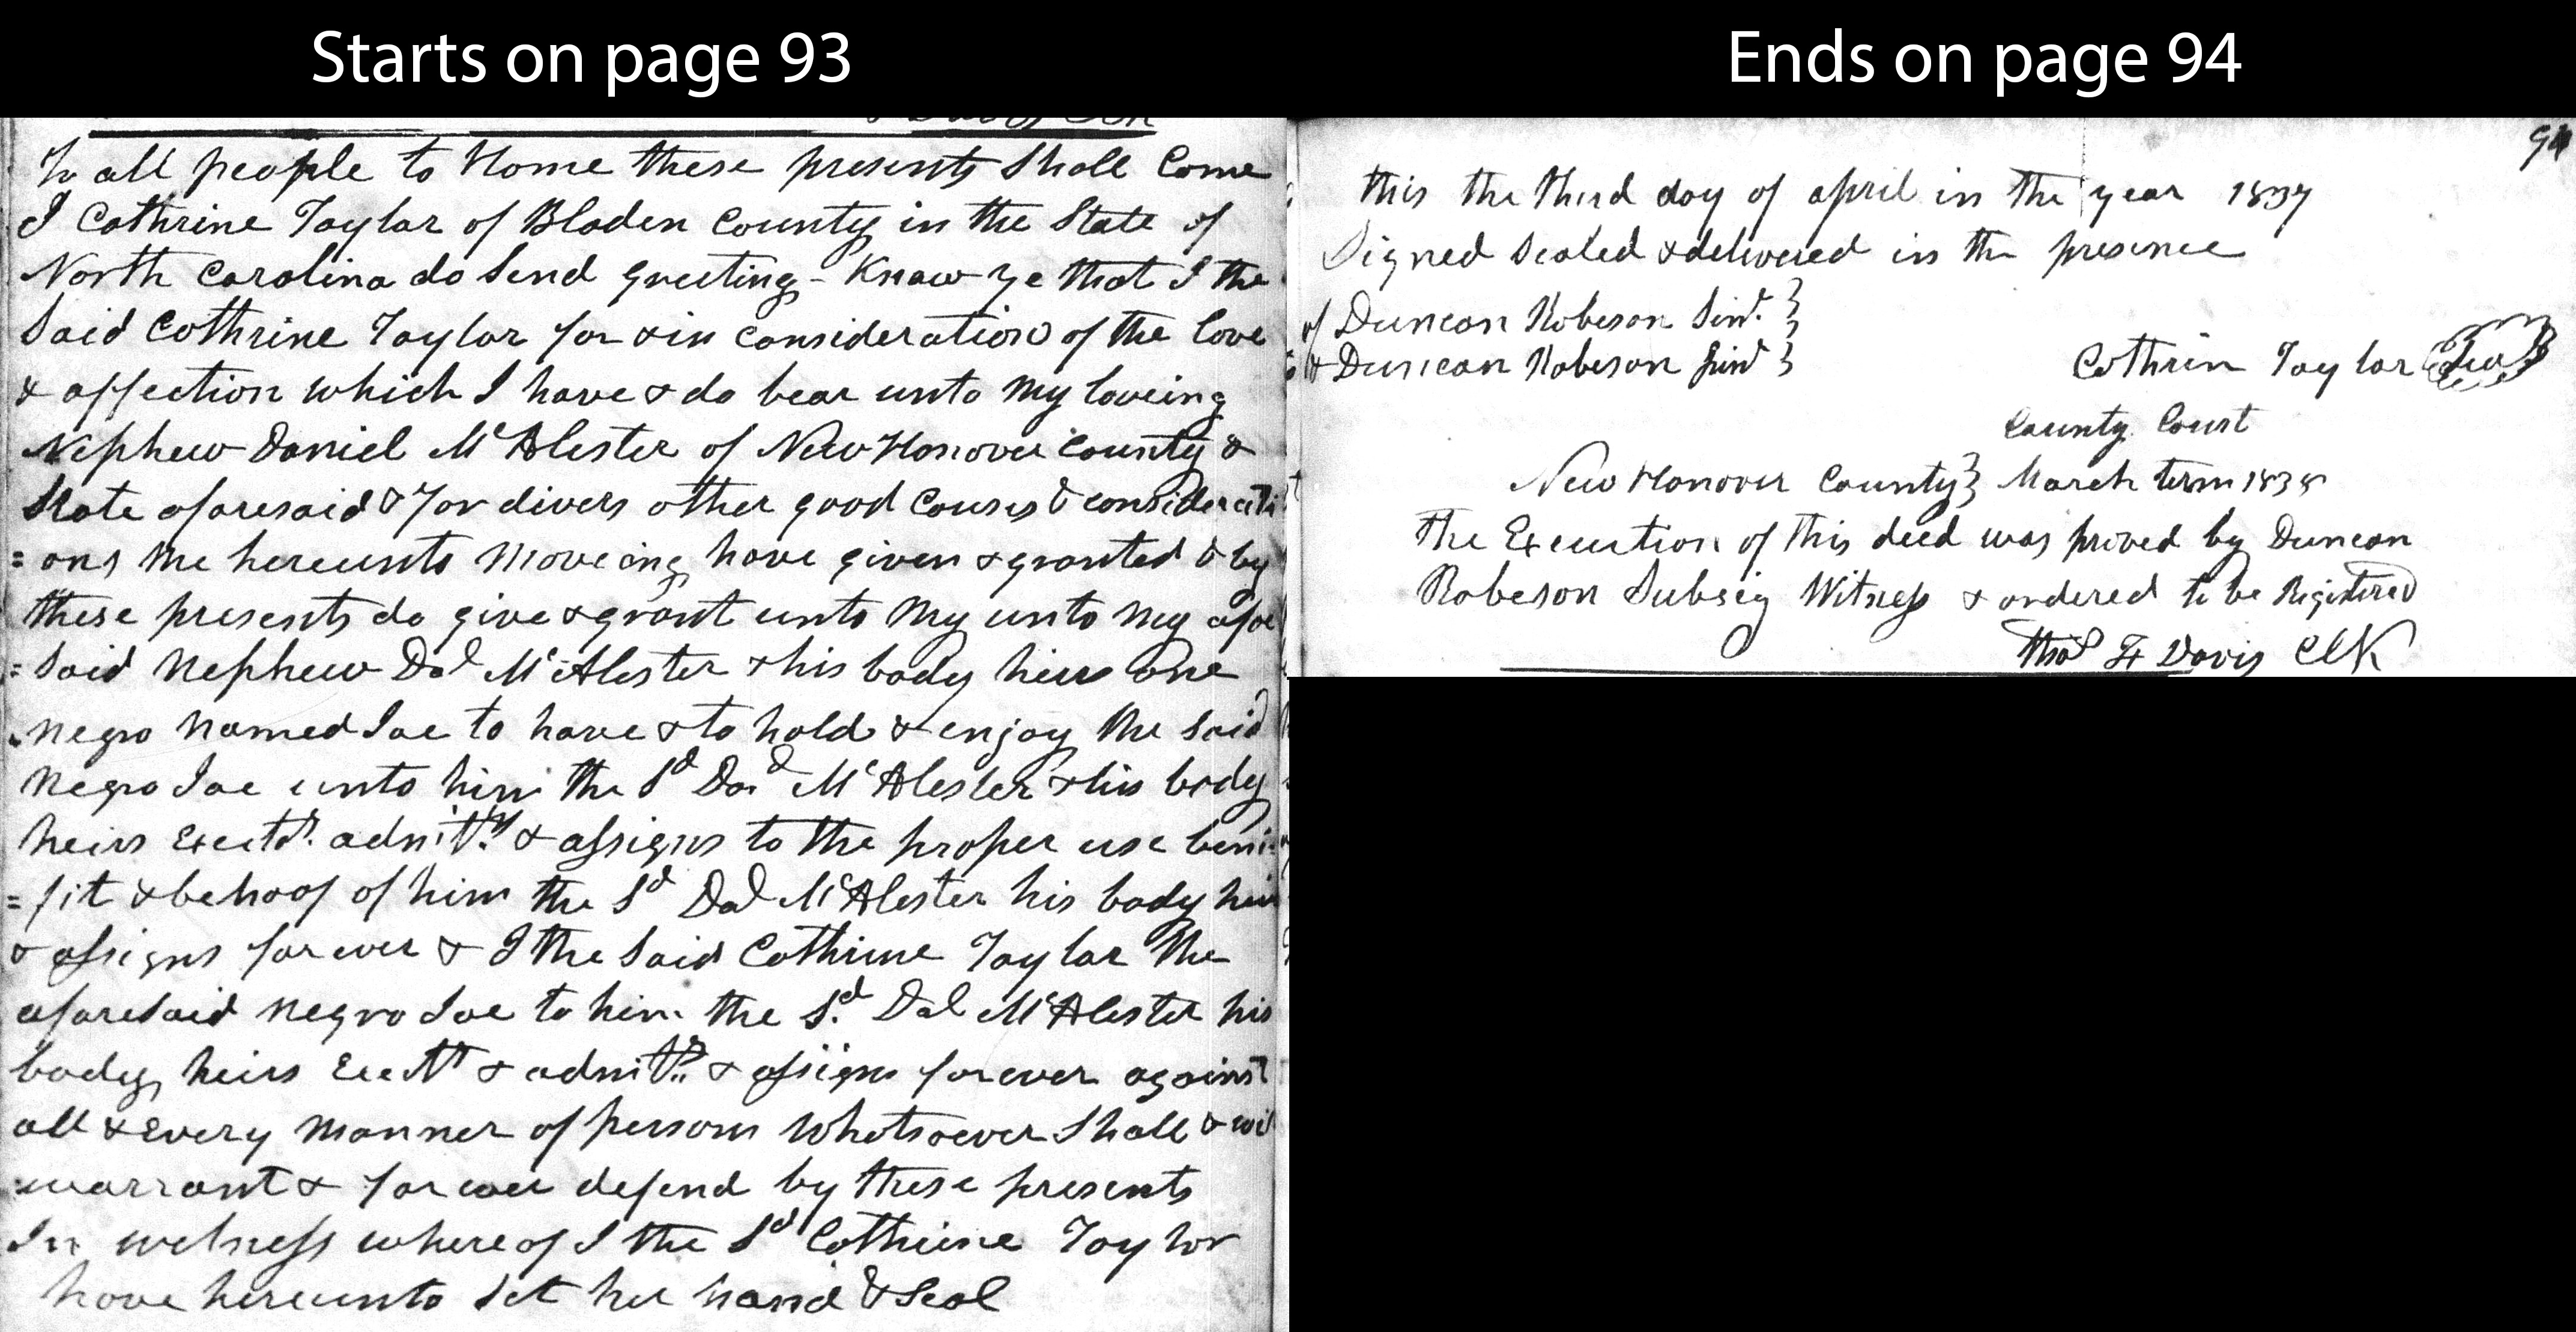 Starts on page 93
To all people to Home these presents Shall Come
I Cathrine Taylor of Bladen County in the State of
North Carolina do Send greeting - Know ye that I the
Said Cathrine Taylor for & in consideration of the love
& affection which I have & do bear unto my loveing
Nephew Daniel McAlester of New Hanover County &
State aforesaid & for divers other good Causes & considerati
= ons me hereunto moveing have given & granted & by
these presents do give & grant unto my unto my afore
= Said Nephew Dal McAlester & his body heirs one
negro named Joe to have & to hold & enjoy the said
Negro Joe unto him the Sd Dal McAlester & his body
heirs & assigns to the proper use beni
= fit & behoof of him the Sd Dal McAlester his body heirs
& assigns forever & I the Said Cathrine Taylor the
aforesaid negro Joe to him the Sd. Dal McAlester his
body heirs & assigns forever against
all & every manner of persons Whatsoever Shall & will
warrant & forever defend by these presents
In witness whereof I the Sd Cathrine Taylor
have hereunto Set her hand & Seal
Ends on page 94
94
this the third day of april in the year 1837
Signed Sealed & delivered in the presence
of Duncan Robeson Sinr. }
& Duncan Robeson Junr }
Cathrin Taylor
County Court
New Hanover County } March term 1838
The Execution of this deed was proved by Duncan
Robeson Witness & ordered to be Registered
Thos F Davis Clk